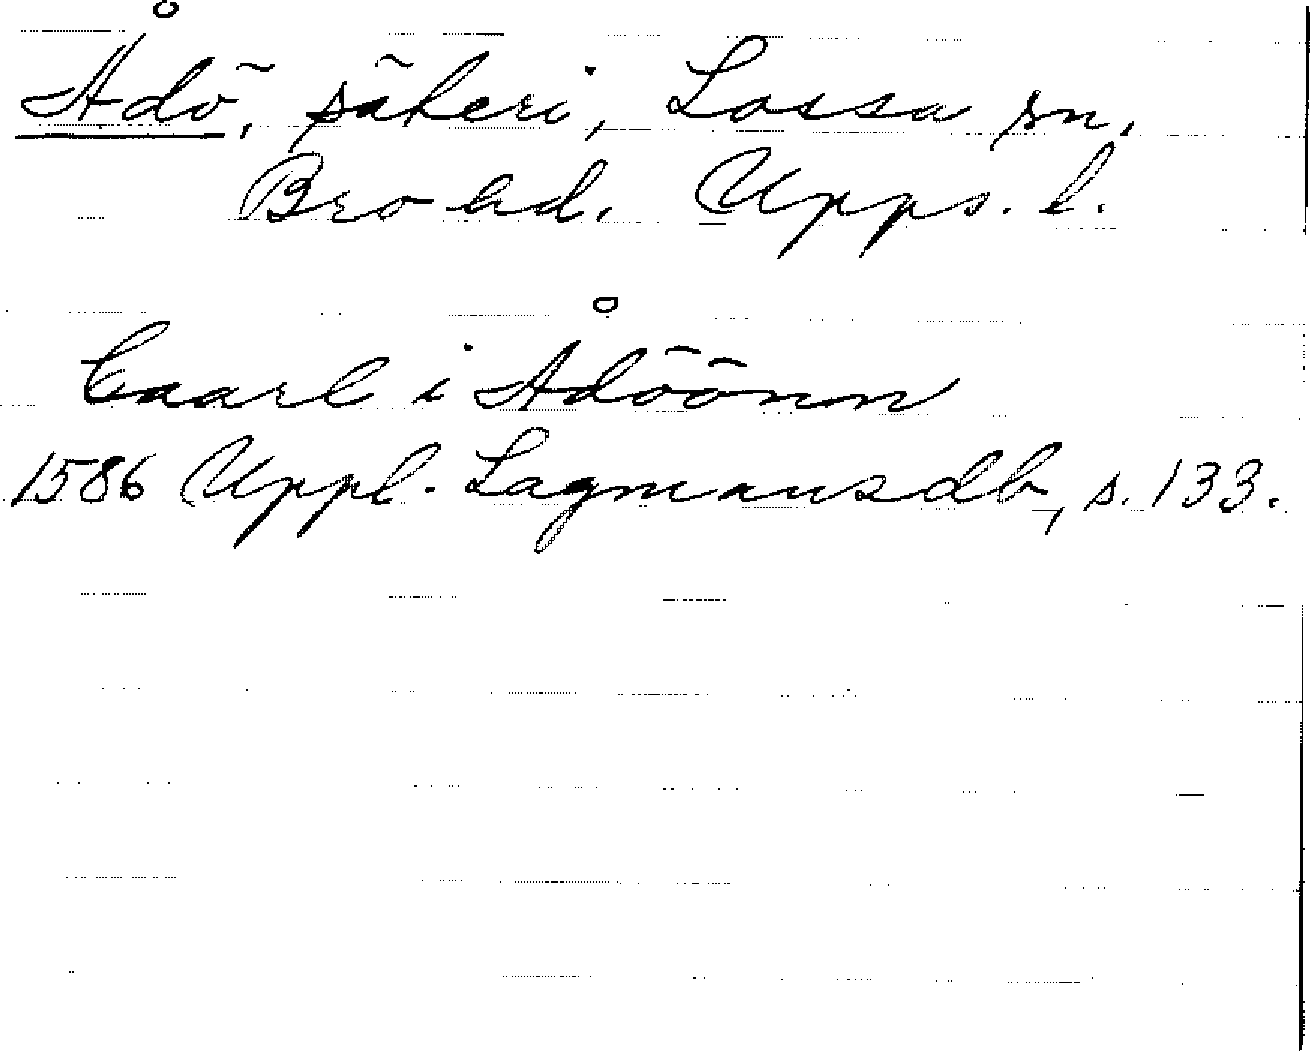 Ådö, säteri, Lossa sn,
Bro hd. Upps. l.
Caarl i Ådöönn
1586 Uppl. Lagmansdb, s. 133.